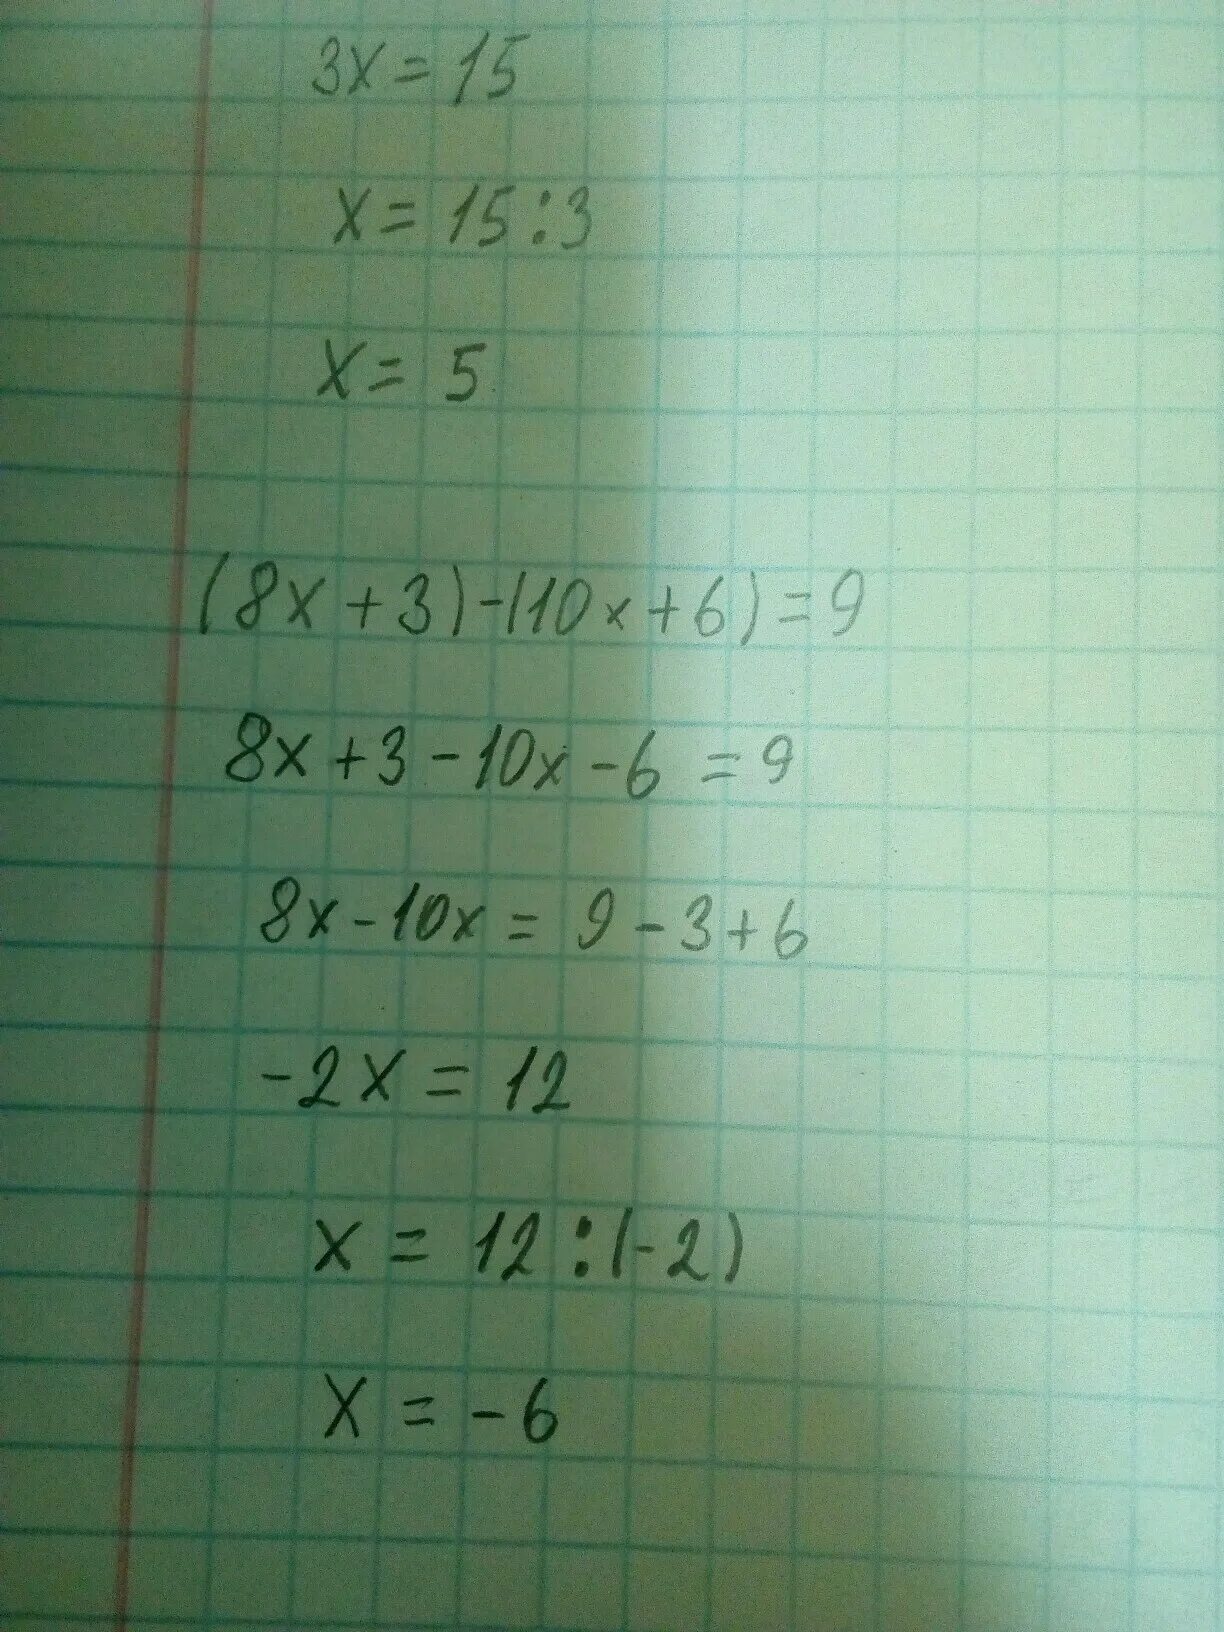 3x = 15
x = 15 : 3
x = 5
(8x + 3) - (10x + 6) = 9
8x + 3 - 10x - 6 = 9
8x - 10x = 9 - 3 + 6
-2x = 12
x = 12 : (-2)
x = -6